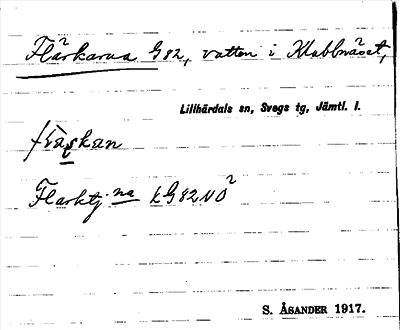 Flärkarna G82, vatten i Klubbnäset,
Lillhärdals sn, Svegs tg, Jämtl. l.
Flarktj:na kG82NO²
S. ÅSANDER 1917.